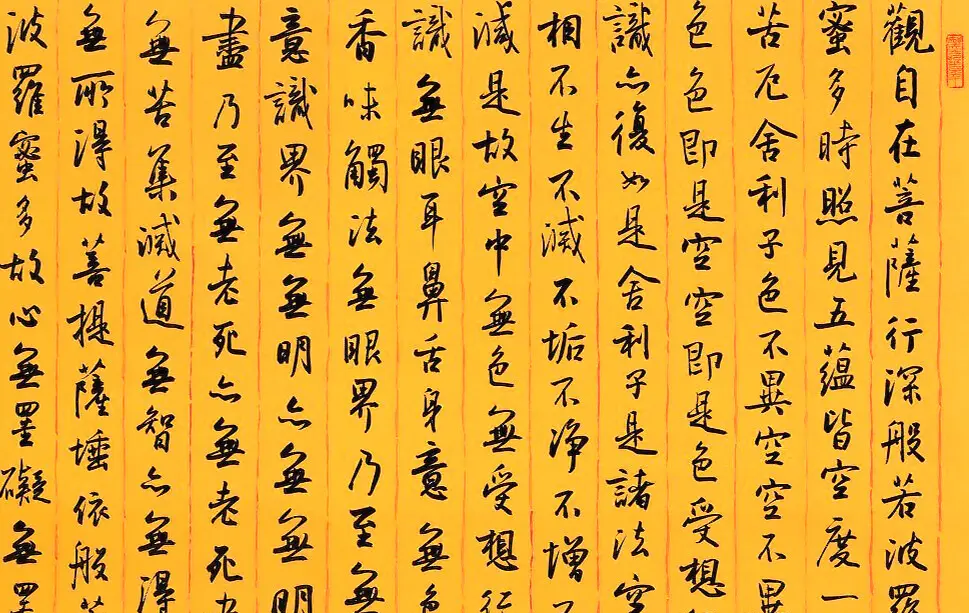 觀自在菩薩行深般若波羅
蜜多時照見五蘊皆空度一
苦厄舍利子色不異空空不異
色色即是空空即是色受想
識亦復如是舍利子是諸法空
相不生不滅不垢不淨不增
減是故空中無色無受想行
識無眼耳鼻舌身意無色
香味觸法無眼界乃至無
意識界無無明亦無無明
盡乃至無老死亦無老死
無苦集滅道無智亦無得
無所得故菩提薩埵依般若
波羅蜜多故心無罣礙無罣